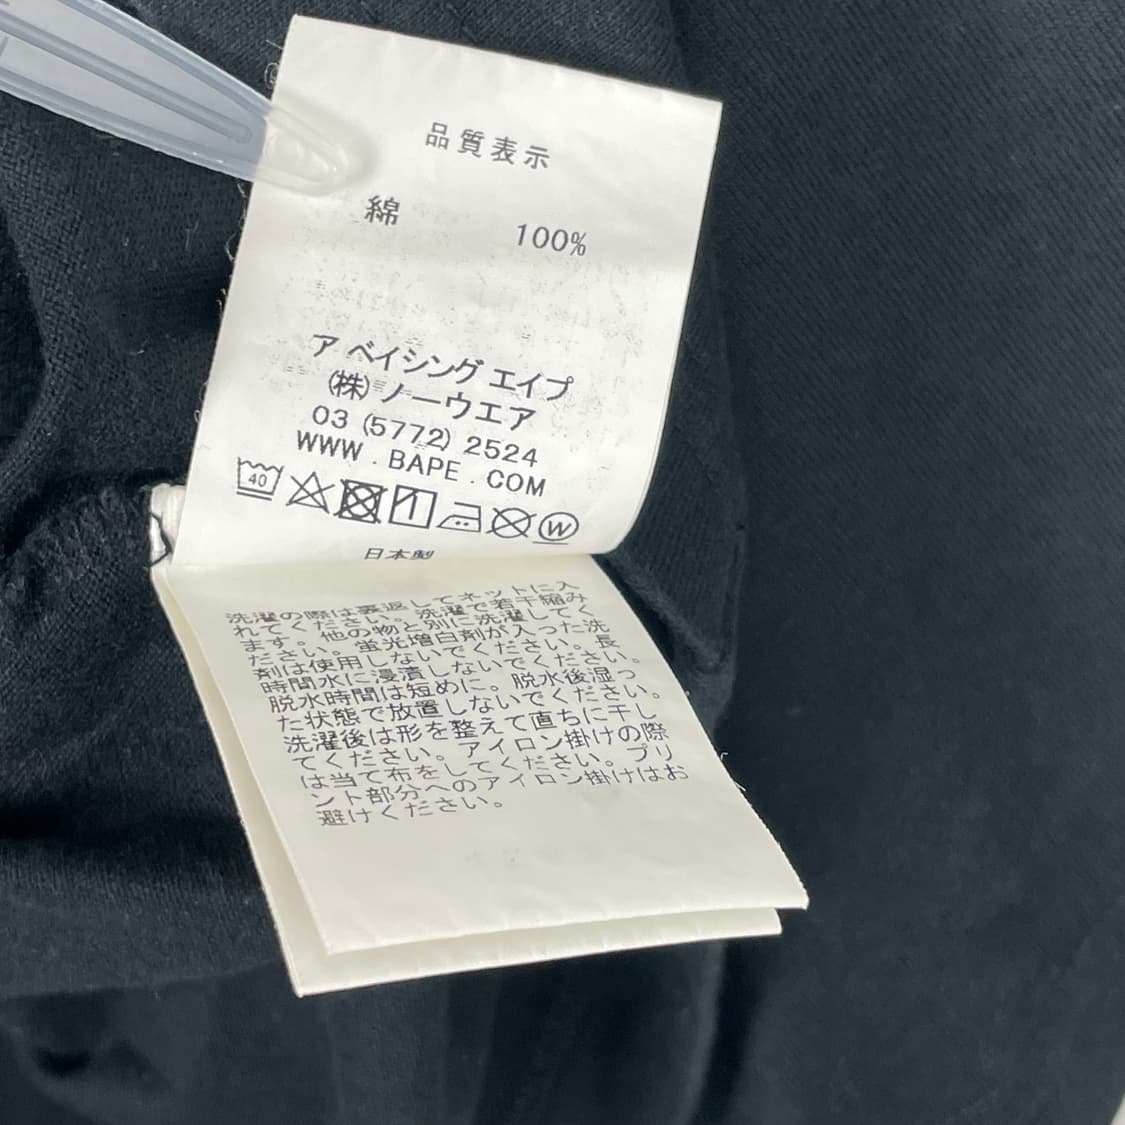 品質表示
綿 100%
ア ベイシング エイプ
(株) ノーウエア
03 (5772) 2524
WWW . BAPE . COM
40
W
日本製
洗濯の際は裏返してネットに入
れてください。洗濯で若干縮み
ます。他の物と別に洗濯してく
ださい。蛍光増白剤が入った洗
剤は使用しないでください。長
時間水に浸漬しないでください。
脱水時間は短めに。脱水後湿っ
た状態で放置しないでください。
洗濯後は形を整えて直ちに干し
てください。アイロン掛けの際
は当て布をしてください。プリ
ント部分へのアイロン掛けはお
避けください。